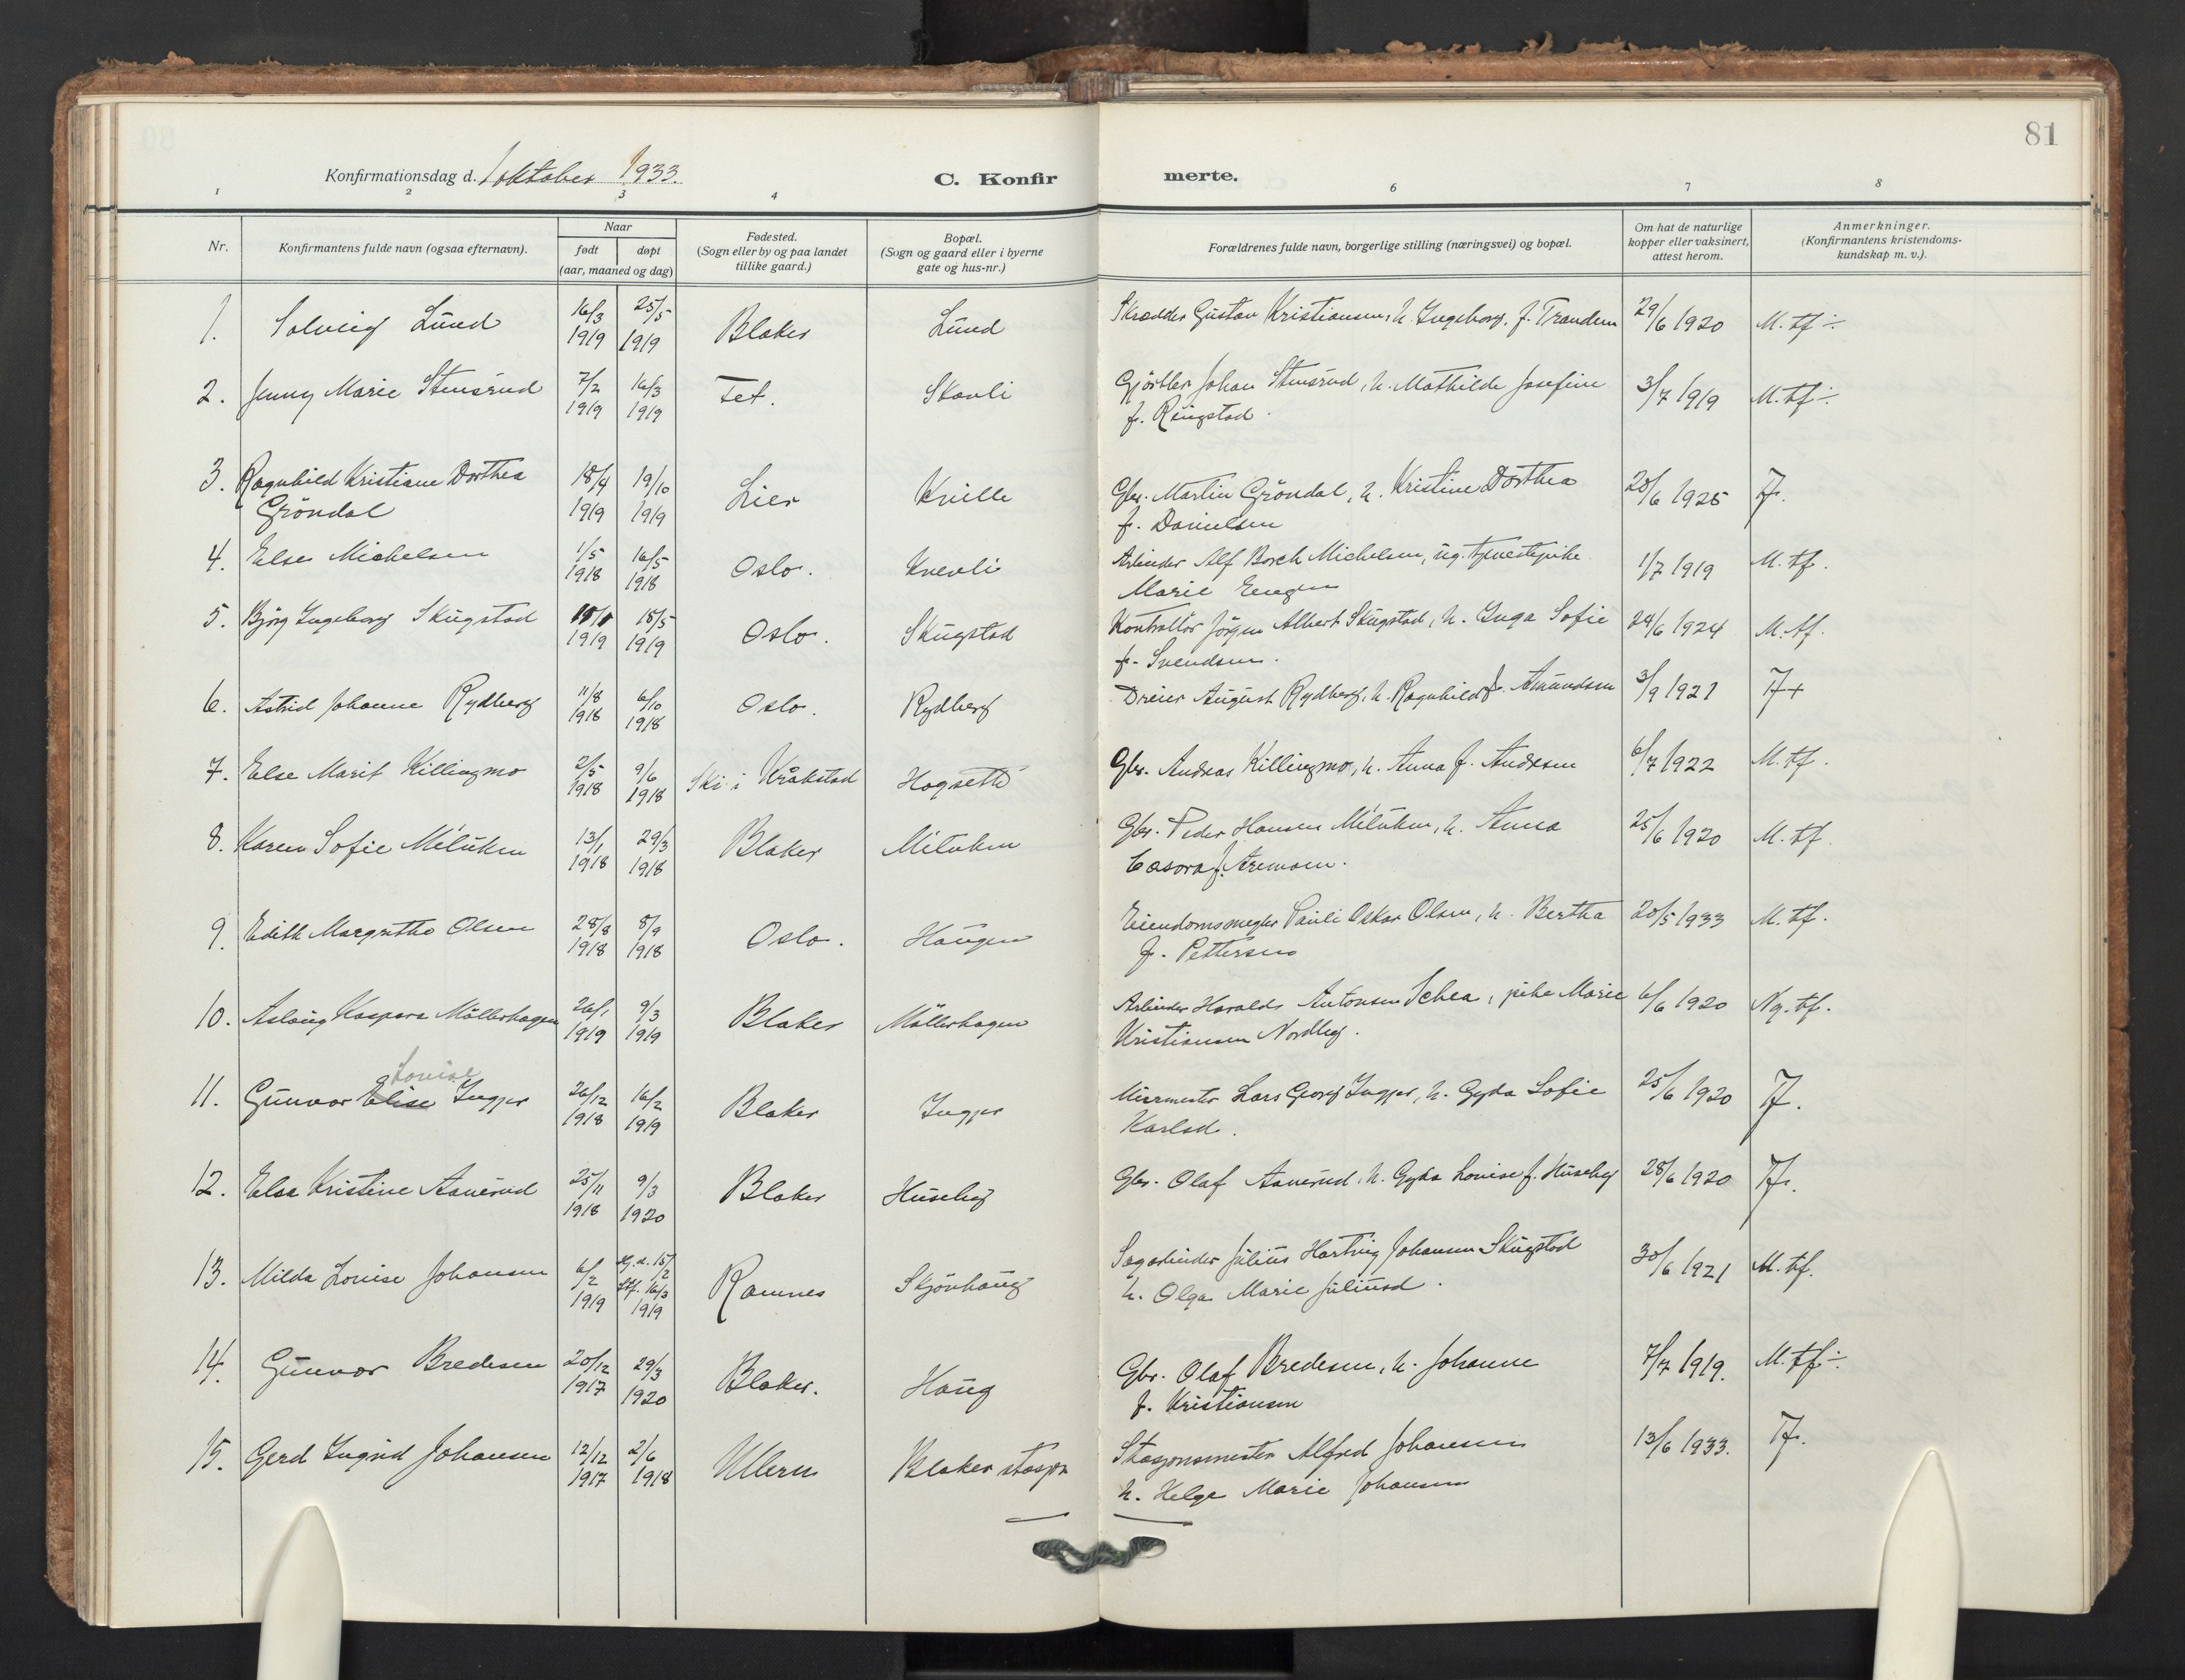 81
Konfirmationsdag d. 1 oktober 1933.
C. Konfir merte.
1 2 3 4 6 7 8
Nr.
Konfirmantens fulde navn (ogsaa efternavn).
Naar
født døpt
(aar, maaned og dag)
Fødested.
(Sogn eller by og paa landet
tillike gaard.)
Bopæl.
(Sogn og gaard eller i byerne
gate og hus-nr.)
Forældrenes fulde navn, borgerlige stilling (næringsvei) og bopæl.
Om hat de naturlige
kopper eller vaksinert,
attest herom.
Anmerkninger.
(Konfirmantens kristendoms-
kundskap m. v.).
1. Solveig Lund 16/3 1919 25/5 1919 Blaker Lund Skrædder Gustav Kristiansen, h. Ingeborg, f. Trandem 29/6 1920 M. tf ÷
2. Jenny Marie Stensrud 7/2 1919 16/3 1919 Fet. Skovli Gjørtler Johan Stensrud, h. Mathilde Josefine
f. Ringstad. 3/7 1919 M. tf ÷
3. Ragnhild Kristiane Dorthea
Grøndal 18/4 1919 19/10 1919 Lier Kville Gbr. Martin Grøndal, h. Kristine Dorthea
f. Danielsen 20/6 1925 Tf.
4. Else Michelsen 1/5 1918 16/5 1918 Oslo. Knevli Arbeider Alf Borch Michelsen, ug. tjenestepike
Marie Engen 1/7 1919 M. tf.
5. Bjørg Ingeborg Skugstad 1919 18/5 1919 Oslo. Skugstad Kontrollør Jørgen Albert Skugstad, h. Inga Sofie
f. Svendsen. 24/6 1924 M. tf.
6. Astrid Johanne Rydberg 11/8 1918 6/10 1918 Oslo. Rydberg Dreier August Rydberg, h. Ragnhild f. Amundsen 3/9 1921 Tf +
7. Else Marit Killingmo 2/5 1918 9/6 1918 Ski i Kråkstad Hogseth Gbr. Andreas Killingmo, h. Anna f. Andresen 6/7 1922 M. tf.
8. Karen Sofie Melüken 13/1 1918 29/3 1918 Blaker Gbr. Peder Hansen h. Anna
25/6 1920 M. tf.
9. Edith Margrethe Olsen 28/8 1918 8/9 1918 Oslo. Haugen Eiendomsmegler Pauli Oskar Olsen, h. Bertha
f. Pettersen 20/5 1933 M. tf.
10. Aslaug Kaspara Møllerhagen 26/1 1919 9/3 1919 Blaker Møllerhagen Arbeider Harald Antonsen Schea, pike Marie
Kristiansen Nordby. 6/6 1920 Ng. tf.
Louise
11. Gunvor Elise Ingjer 26/12 1918 16/2 1919 Blaker Ingjer Murmester Lars Georg Ingjer, h. Gyda Sofie
Karlsd. 25/6 1920 Tf.
12. Else Kristine Aanerud 25/11 1918 9/3 1920 Blaker Huseby Gbr. Olaf Aanerud, h. Gyda Louise f. Huseby 28/6 1920 Tf.
13. Milda Louise Johansen 6/2 1919 Hj. d. 15/2 Stf. 16/3 1919 Ramnes Skjønhaug Sagarbeider Julius Hartvig Johansen Skugstad
h. Olga Marie Juliusd. 30/6 1921 M. tf.
14. Gunvor Bredesen 20/12 1917 29/3 1920 Blaker. Haug Gbr. Olaf Bredesen, h. Johanne
f. Kristiansen 7/7 1919. M. tf ÷.
15. Gerd Ingrid Johansen 12/12 1917 2/6 1918 Ullern Blaker stasjon Stasjonsmester Alfred Johansen
h. Helga Marie Johansen 13/6 1933. Tf.